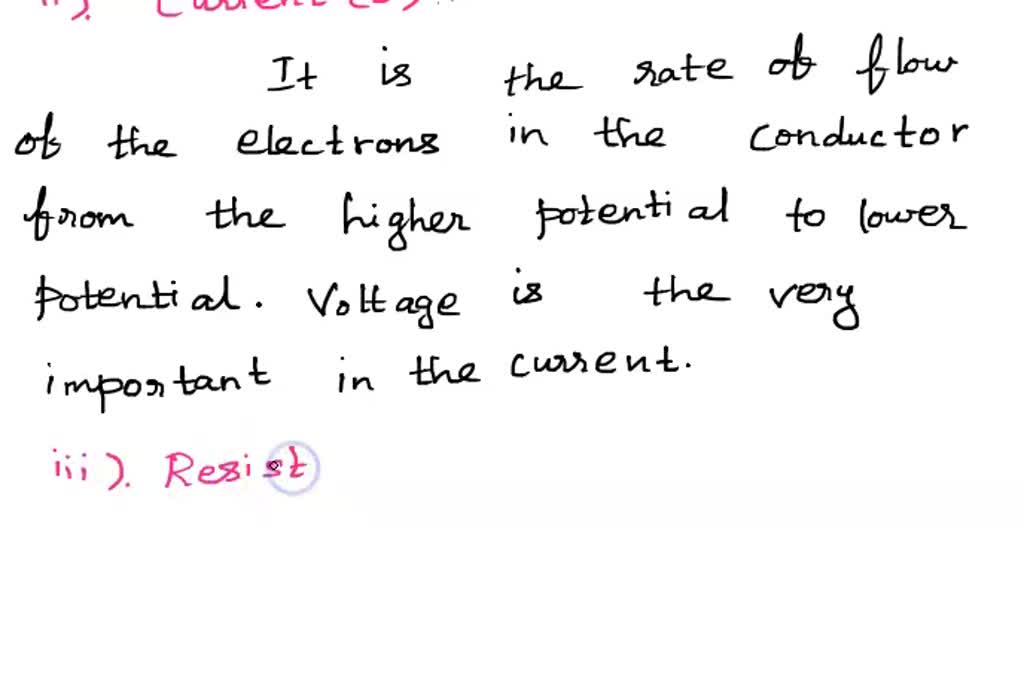 ii). Current (I) ..
It is the rate of flow
of the electrons in the conductor
from the higher potential to lower
potential. Voltage is the very
important in the current.
iii). Resist